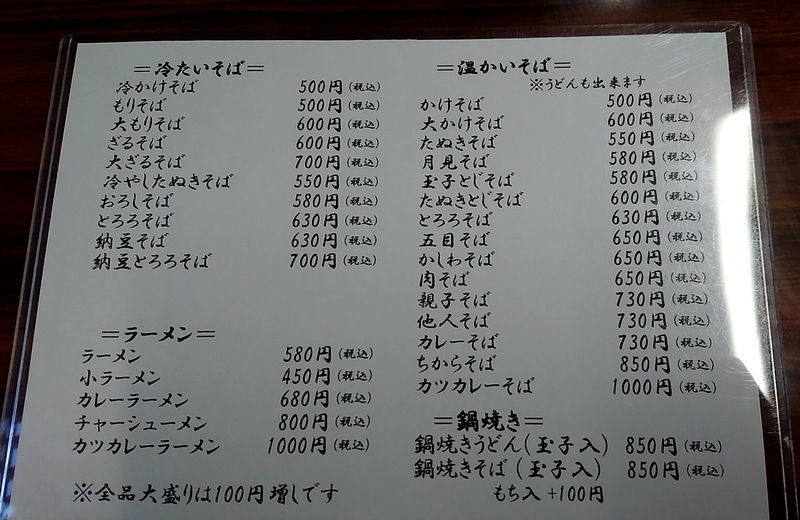 ＝冷たいそば＝
冷かけそば 500円(税込)
もりそば 500円(税込)
大もりそば 600円(税込)
ざるそば 600円(税込)
大ざるそば 700円(税込)
冷やしたぬきそば 550円(税込)
おろしそば 580円(税込)
とろろそば 630円(税込)
納豆そば 630円(税込)
納豆とろろそば 700円(税込)
＝ラーメン＝
ラーメン 580円(税込)
小ラーメン 450円(税込)
カレーラーメン 680円(税込)
チャーシューメン 800円(税込)
カツカレーラーメン 1000円(税込)
※全品大盛りは100円増しです
＝温かいそば＝
※うどんも出来ます
かけそば 500円(税込)
大かけそば 600円(税込)
たぬきそば 550円(税込)
月見そば 580円(税込)
玉子とじそば 580円(税込)
たぬきとじそば 600円(税込)
とろろそば 630円(税込)
五目そば 650円(税込)
かしわそば 650円(税込)
肉そば 650円(税込)
親子そば 730円(税込)
他人そば 730円(税込)
カレーそば 730円(税込)
ちからそば 850円(税込)
カツカレーそば 1000円(税込)
＝鍋焼き＝
鍋焼きうどん(玉子入) 850円(税込)
鍋焼きそば(玉子入) 850円(税込)
もち入 +100円